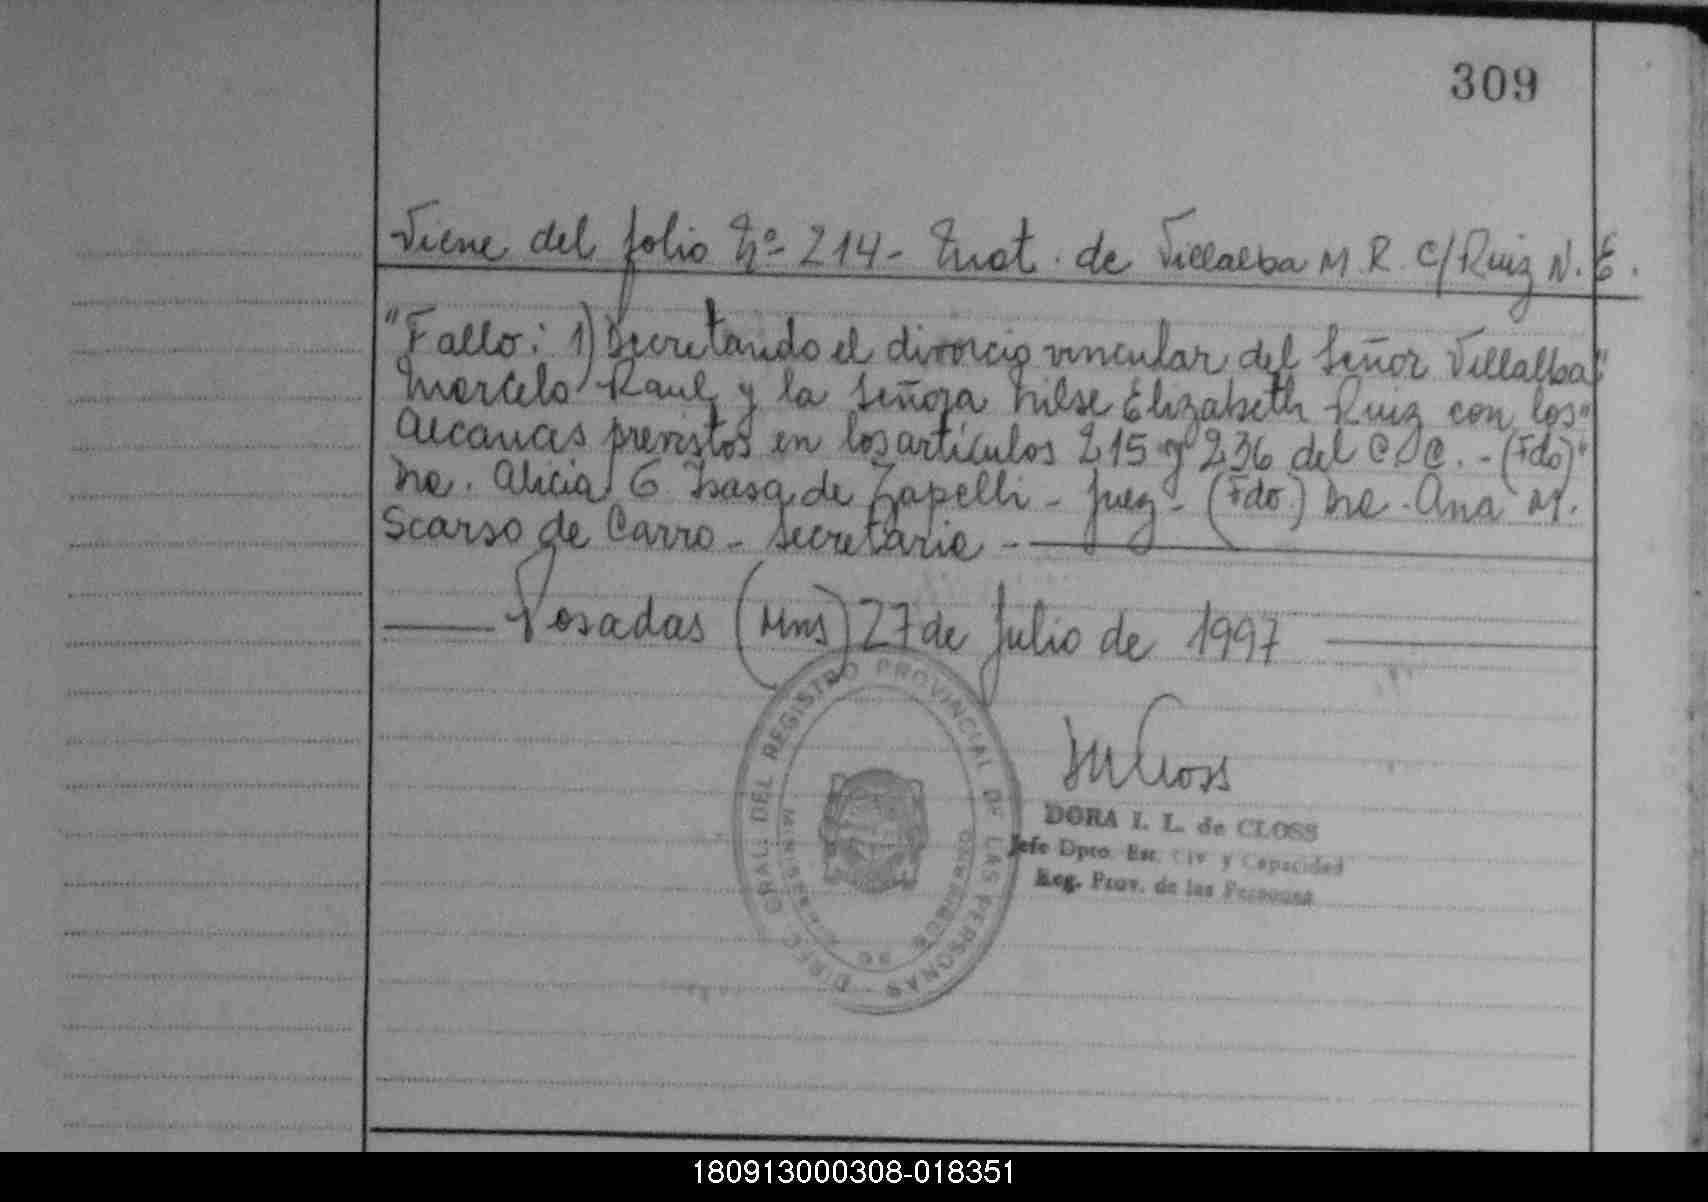 309
Viene del folio Nº 214 - Mat. de Villalba M. R. C/ Ruiz N. E.
"Fallo: 1) Decretando el divorcio vincular del Señor Villalba"
Marcelo Raul y la Señora Nilse Elizabeth Ruiz con los"
alcances previstos en los artículos 215 y 236 del C.C. - (Fdo)"
Dra. Alicia G. Isasa de Zapelli - Juez - (Fdo.) Dra. Ana M.
Scarso de Carro - Secretaria -
Posadas (Mns) 27 de Julio de 1997
DIREC. GRAL. DEL REGISTRO PROVINCIAL DE LAS PERSONAS
MINISTERIO DE GOBIERNO
DORA I. L. de CLOSS
Jefe Dpto. Est. Civ. y Capacidad
Reg. Prov. de las Personas
180913000308-018351